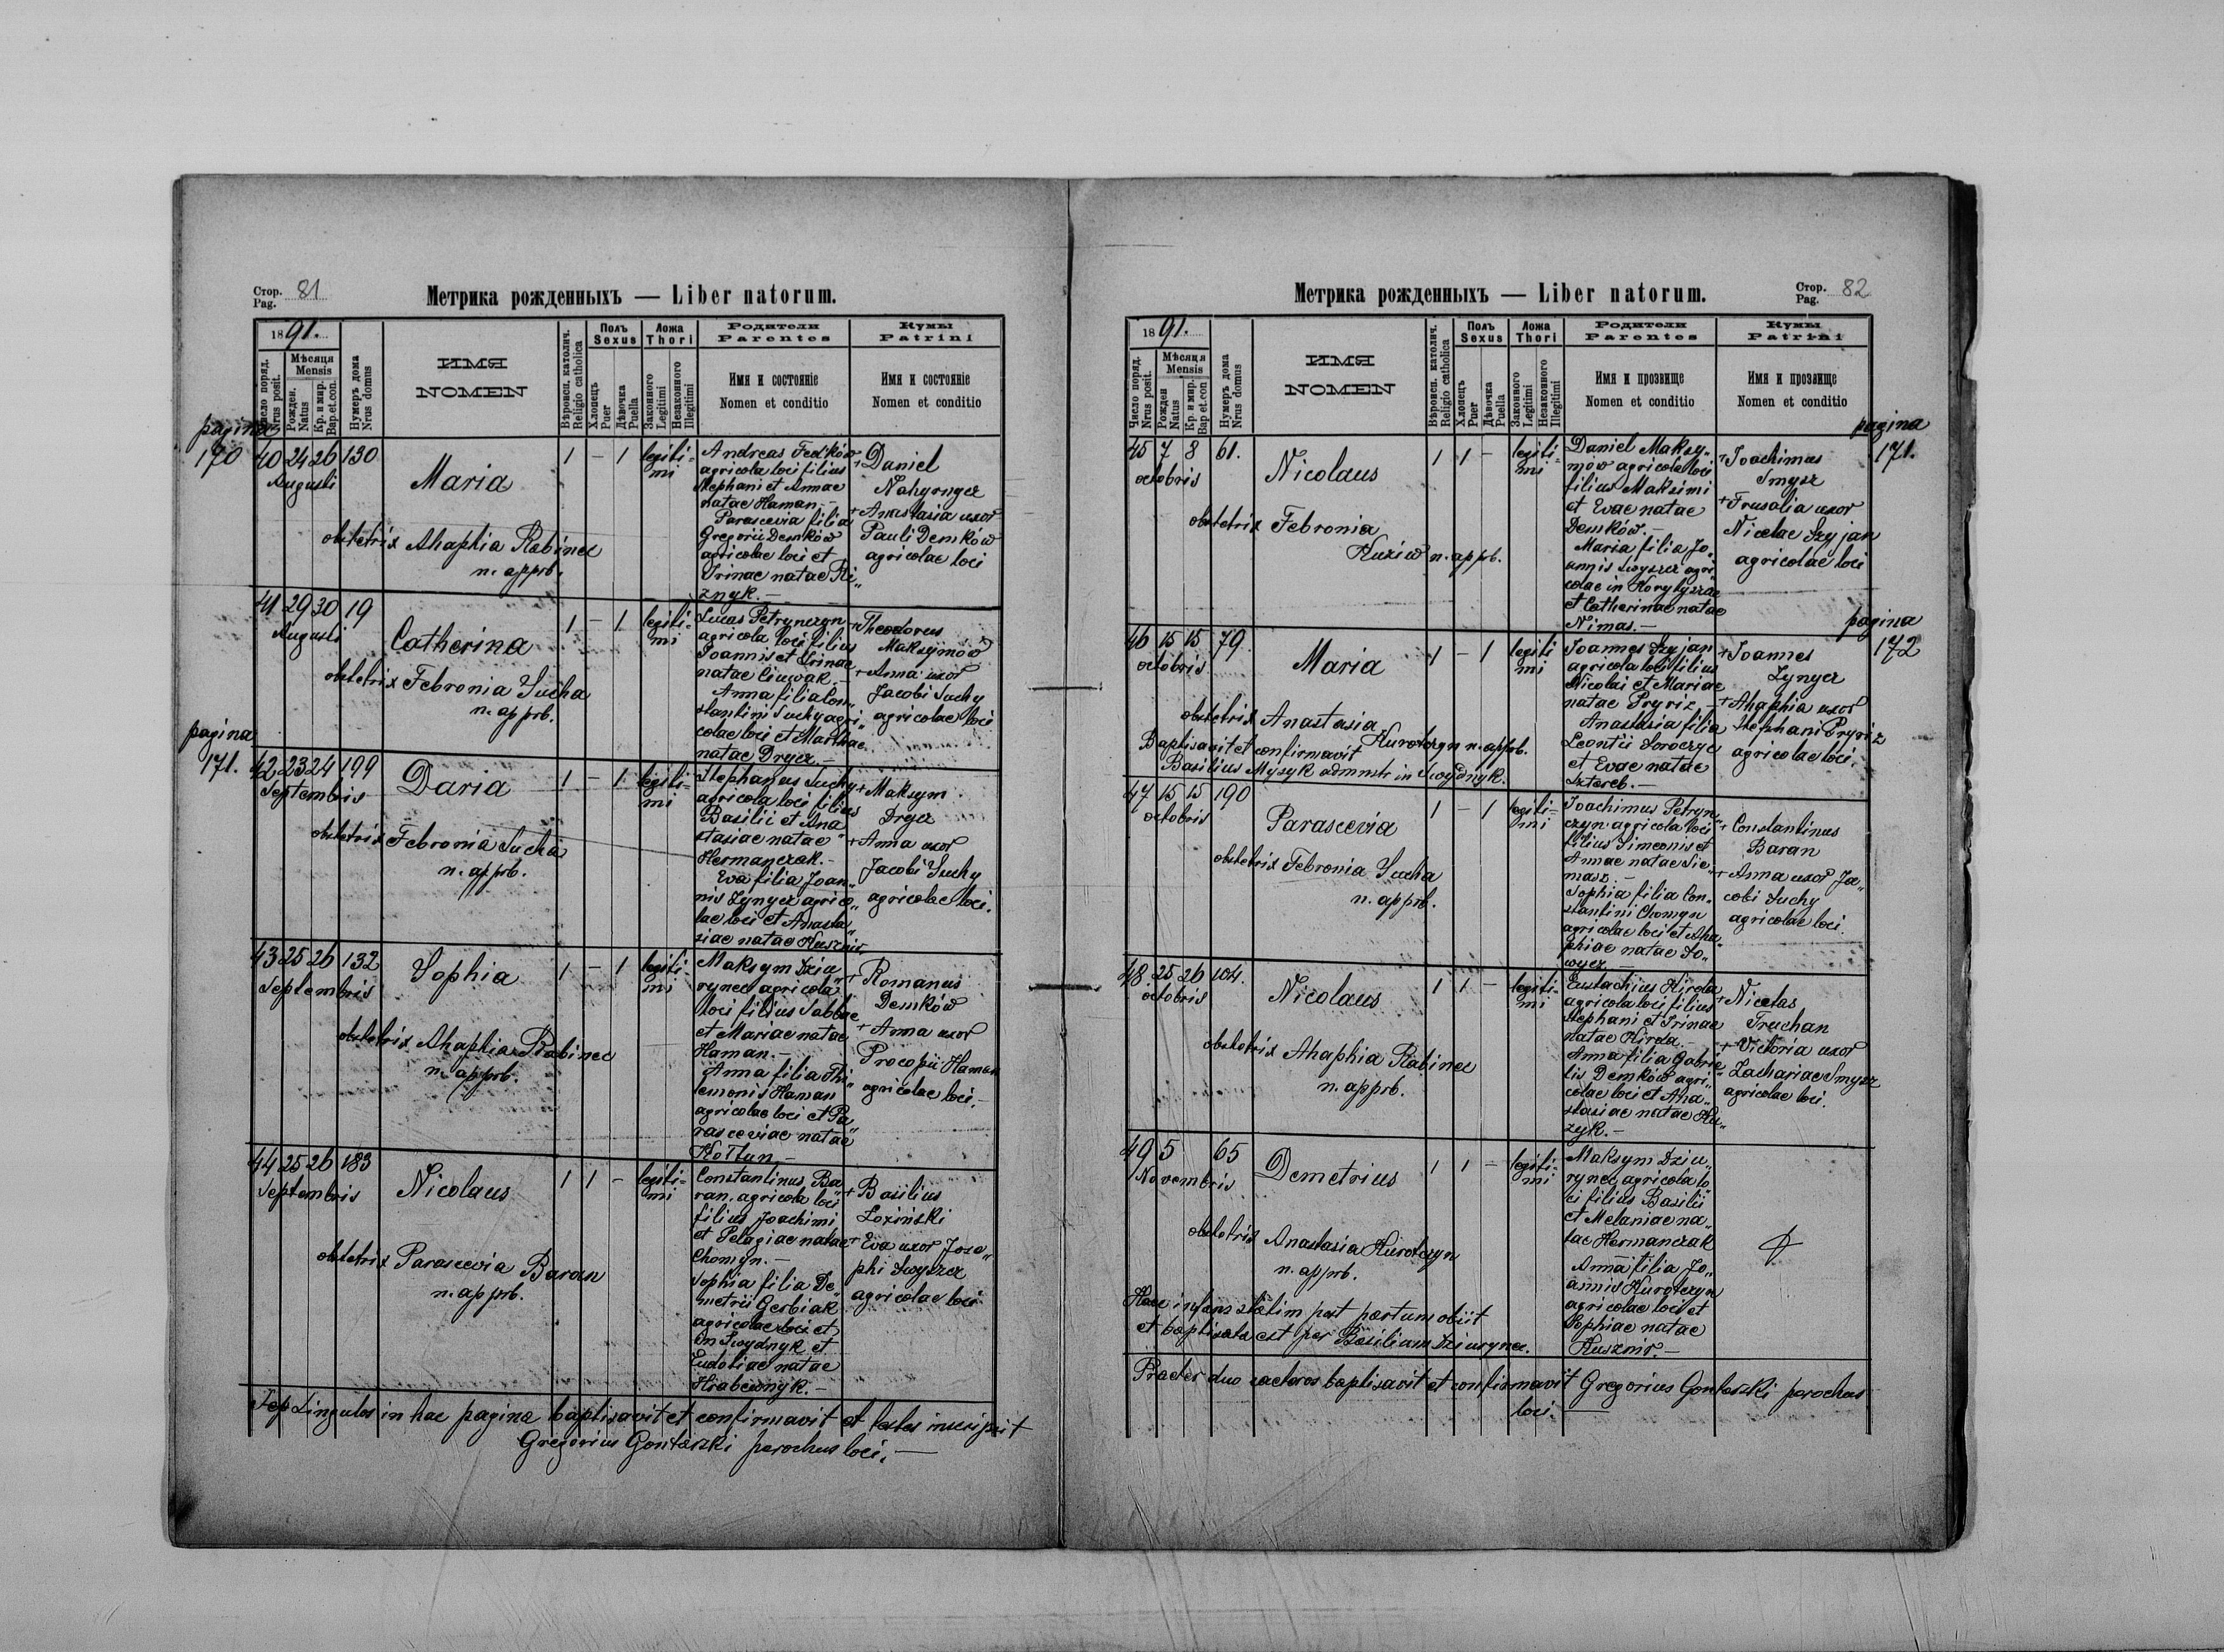 Стор.
Pag. 81
Метрика рожденныхъ — Liber natorum.
1891.
Число поряд.
Nrus posit.
Мѣсяця
Mensis
Рожден.
Natus
Кр. и мир.
Bap. et. con.
Нумеръ дома
Nrus domus
ИМЯ
NOMEN
Вѣроисп. католич.
Religio catholica
Полъ
Sexus
Хлопецъ
Puer
Дѣвочка
Puella
Ложа
Thori
Законного
Legitimi
Незаконного
Illegitimi
Родители
Parentes
Имя и состояніе
Nomen et conditio
Кумы
Patrini
Имя и состояніе
Nomen et conditio
pagina
170
40 24 26 130
Augusti
Maria
1 – 1 legiti=
mi
obstetrix Ahaphia Rabinec
n. approb.
Andreas Fedków
agricola loci filius
Stephani et Annae
natae Haman.–
Parascevia filia
Gregorii Demków
agricolae loci et
Irinae natae Ri„
znyk.–
+ Daniel
Nahyrnyer
+ Anastasia uxor
Pauli Demków
agricolae loci
41 29 30 19
Augusti
Catherina
1 – 1 legiti=
mi
obstetrix Febronia Sucha
n. approb.
Lucas Petrynczyn
agricola loci filius
Joannis et Irinae
natae Ciuwak.–
Anna filia Con„
stantini Suchy agri„
colae loci et Marthae
natae Dryer.–
+ Theodorus
Maksymów
+ Anna uxor
Jacobi Suchy
agricolae loci
pagina
171.
42 23 24 199
Septembris
Daria
1 – 1 legiti=
mi
obstetrix Febronia Sucha
n. approb.
Stephanus Suchy
agricola loci filius
Basilii et Ana„
stasiae natae
Hermanczak.–
Eva filia Joan„
nis Zynyer agrico„
lae loci et Anasta„
siae natae Kusznir
+ Maksym
Dryer
+ Anna uxor
Jacobi Suchy
agricolae loci.
43 25 26 132
Septembris
Sophia
1 – 1 legiti=
mi
obstetrix Ahaphia Rabinec
n. approb.
Maksym Dziu„
rynec agricola
loci filius Sabbae
et Mariae natae
Haman.–
Anna filia Phi„
lemonis Haman
agricolae loci et Pa„
rasceviae natae
Kołtun.–
+ Romanus
Demków
+ Anna uxor
Procopii Haman
agricolae loci.–
44 25 26 183
Septembris
Nicolaus
1 1 – legiti=
mi
obstetrix Parascevia Baran
n. approb.
Constantinus Ba„
ran agricola loci
filius Joachimi
et Pelagiae natae
Chomyn.–
Sophia filia De„
metrii Gerbiak
agricolae loci et
in Swydnyk et
Eudoxiae natae
Hrabewnyk.–
+ Basilius
Łoziński
+ Eva uxor Jose„
phi Swyszcz
agricolae loci
Singulos in hac pagina baptisavit et confirmavit et testes inscripsit
Gregorius Gontarski parochus loci.–
Метрика рожденныхъ — Liber natorum.
Стор.
Pag. 82
1891.
Число поряд.
Nrus posit.
Мѣсяця
Mensis
Рожден
Natus
Кр. и мир.
Bap et. con
Нумеръ дома
Nrus domus
ИМЯ
NOMEN
Вѣроисп. католич.
Religio catholica
Полъ
Sexus
Хлопецъ
Puer
Дѣвочка
Puella
Ложа
Thori
Законного
Legitimi
Незаконного
Illegitimi
Родители
Parentes
Имя и прозвище
Nomen et conditio
Кумы
Patrini
Имя и прозвище
Nomen et conditio
pagina
171.
45 7 8 61.
octobris
Nicolaus
1 1 – legiti=
mi
obstetrix Febronia
Kuziw n. approb.
Daniel Maksy„
mów agricola loci
filius Maksimi
et Evae natae
Demków.–
Maria filia Jo„
annis Swyszcz agri„
colae in Korytyszcze
et Catherinae natae
Nimas.–
+ Joachimus
Smysz
+ Frusalia uxor
Nicolae Szyjan
agricolae loci
pagina
172
46 15 15 79.
octobris
Maria
1 – 1 legiti
mi
obstetrix Anastasia
Kurotczyn n. approb.
Baptisavit et confirmavit
Basilius Mysyk admnstr in Swydnyk.
Joannes Szyjan
agricola loci filius
Nicolai et Mariae
natae Pryriz.–
Anastasia filia
Leontii Soroczyc
et Evae natae
Sztereb.–
+ Joannes
Zynyer
+ Ahaphia uxor
Stephani Pryriz
agricolae loci.
47 15 15 190
octobris
Parascevia
1 – 1 legiti=
mi
obstetrix Febronia Sucha
n. approb.
Joachimus Petryn„
czyn agricola loci
filius Simeonis et
Annae natae Sie„
masz.–
Sophia filia Con„
stantini Chomyn
agricolae loci et Aha„
phiae natae So„
wyer.–
+ Constantinus
Baran
+ Anna uxor Ja„
cobi Suchy
agricolae loci.
48. 25 26 104.
octobris
Nicolaus
1 1 – legiti=
mi
obstetrix Ahaphia Rabinec
n. approb.
Eustachius Hirda
agricola loci filius
Stephani et Irinae
natae Hirda.–
Anna filia Gabrie„
lis Demków agri„
colae loci et Ana„
stasiae natae Ku„
zyk.–
+ Nicetas
Truchan
+ Victoria uxor
Zachariae Smysz
agricolae loci.
49 5 65
Novembris
Demetrius
1 1 – legiti=
mi
obstetrix Anastasia Kurotczyn
n. approb.
Haec infans statim post partum obiit
et baptisata est per Basilium Dziurynec.
Maksym Dziu„
rynec agricola lo„
ci filius Basilii
et Melaniae na„
tae Hermanczak
Anna filia Jo„
annis Kurotczyn
agricolae loci et
Sophiae natae
Kusznir.–
Praeter duo caeteros baptisavit et confirmavit Gregorius Gontarski parochus
loci.